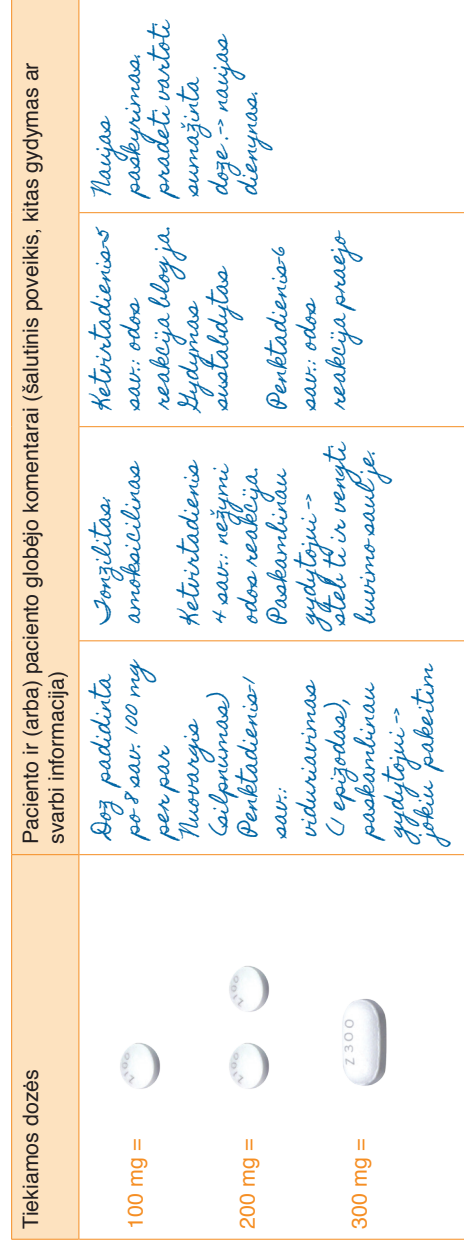 Tiekiamos dozės
Paciento ir (arba) paciento globėjo komentarai (šalutinis poveikis, kitas gydymas ar
svarbi informacija)
100 mg =
Z100
200 mg =
Z100
Z100
300 mg =
Z300
Dož padidinta
po 8 sav. 100 mg
per par
Nuovargis
(silpnumas)
Penktadienis-1
sav.:
viduriavimas
(1 epizodas),
paskambinau
gydytojui ->
jokiu pakeitim
Tonzilitas:
amoksicilinas
Ketvirtadienis
4 sav.: nežymi
odos reakcija.
Paskambinau
gydytojui ->
steb ti ir vengti
buvimo saul je.
Ketvirtadienis-5
sav.: odos
reakcija blog ja.
Gydymas
sustabdytas
Penktadienis-6
sav.: odos
reakcija praejo
Naujas
paskyrimas:
pradeti vartoti
sumažinta
doze. -> naujas
dienynas.